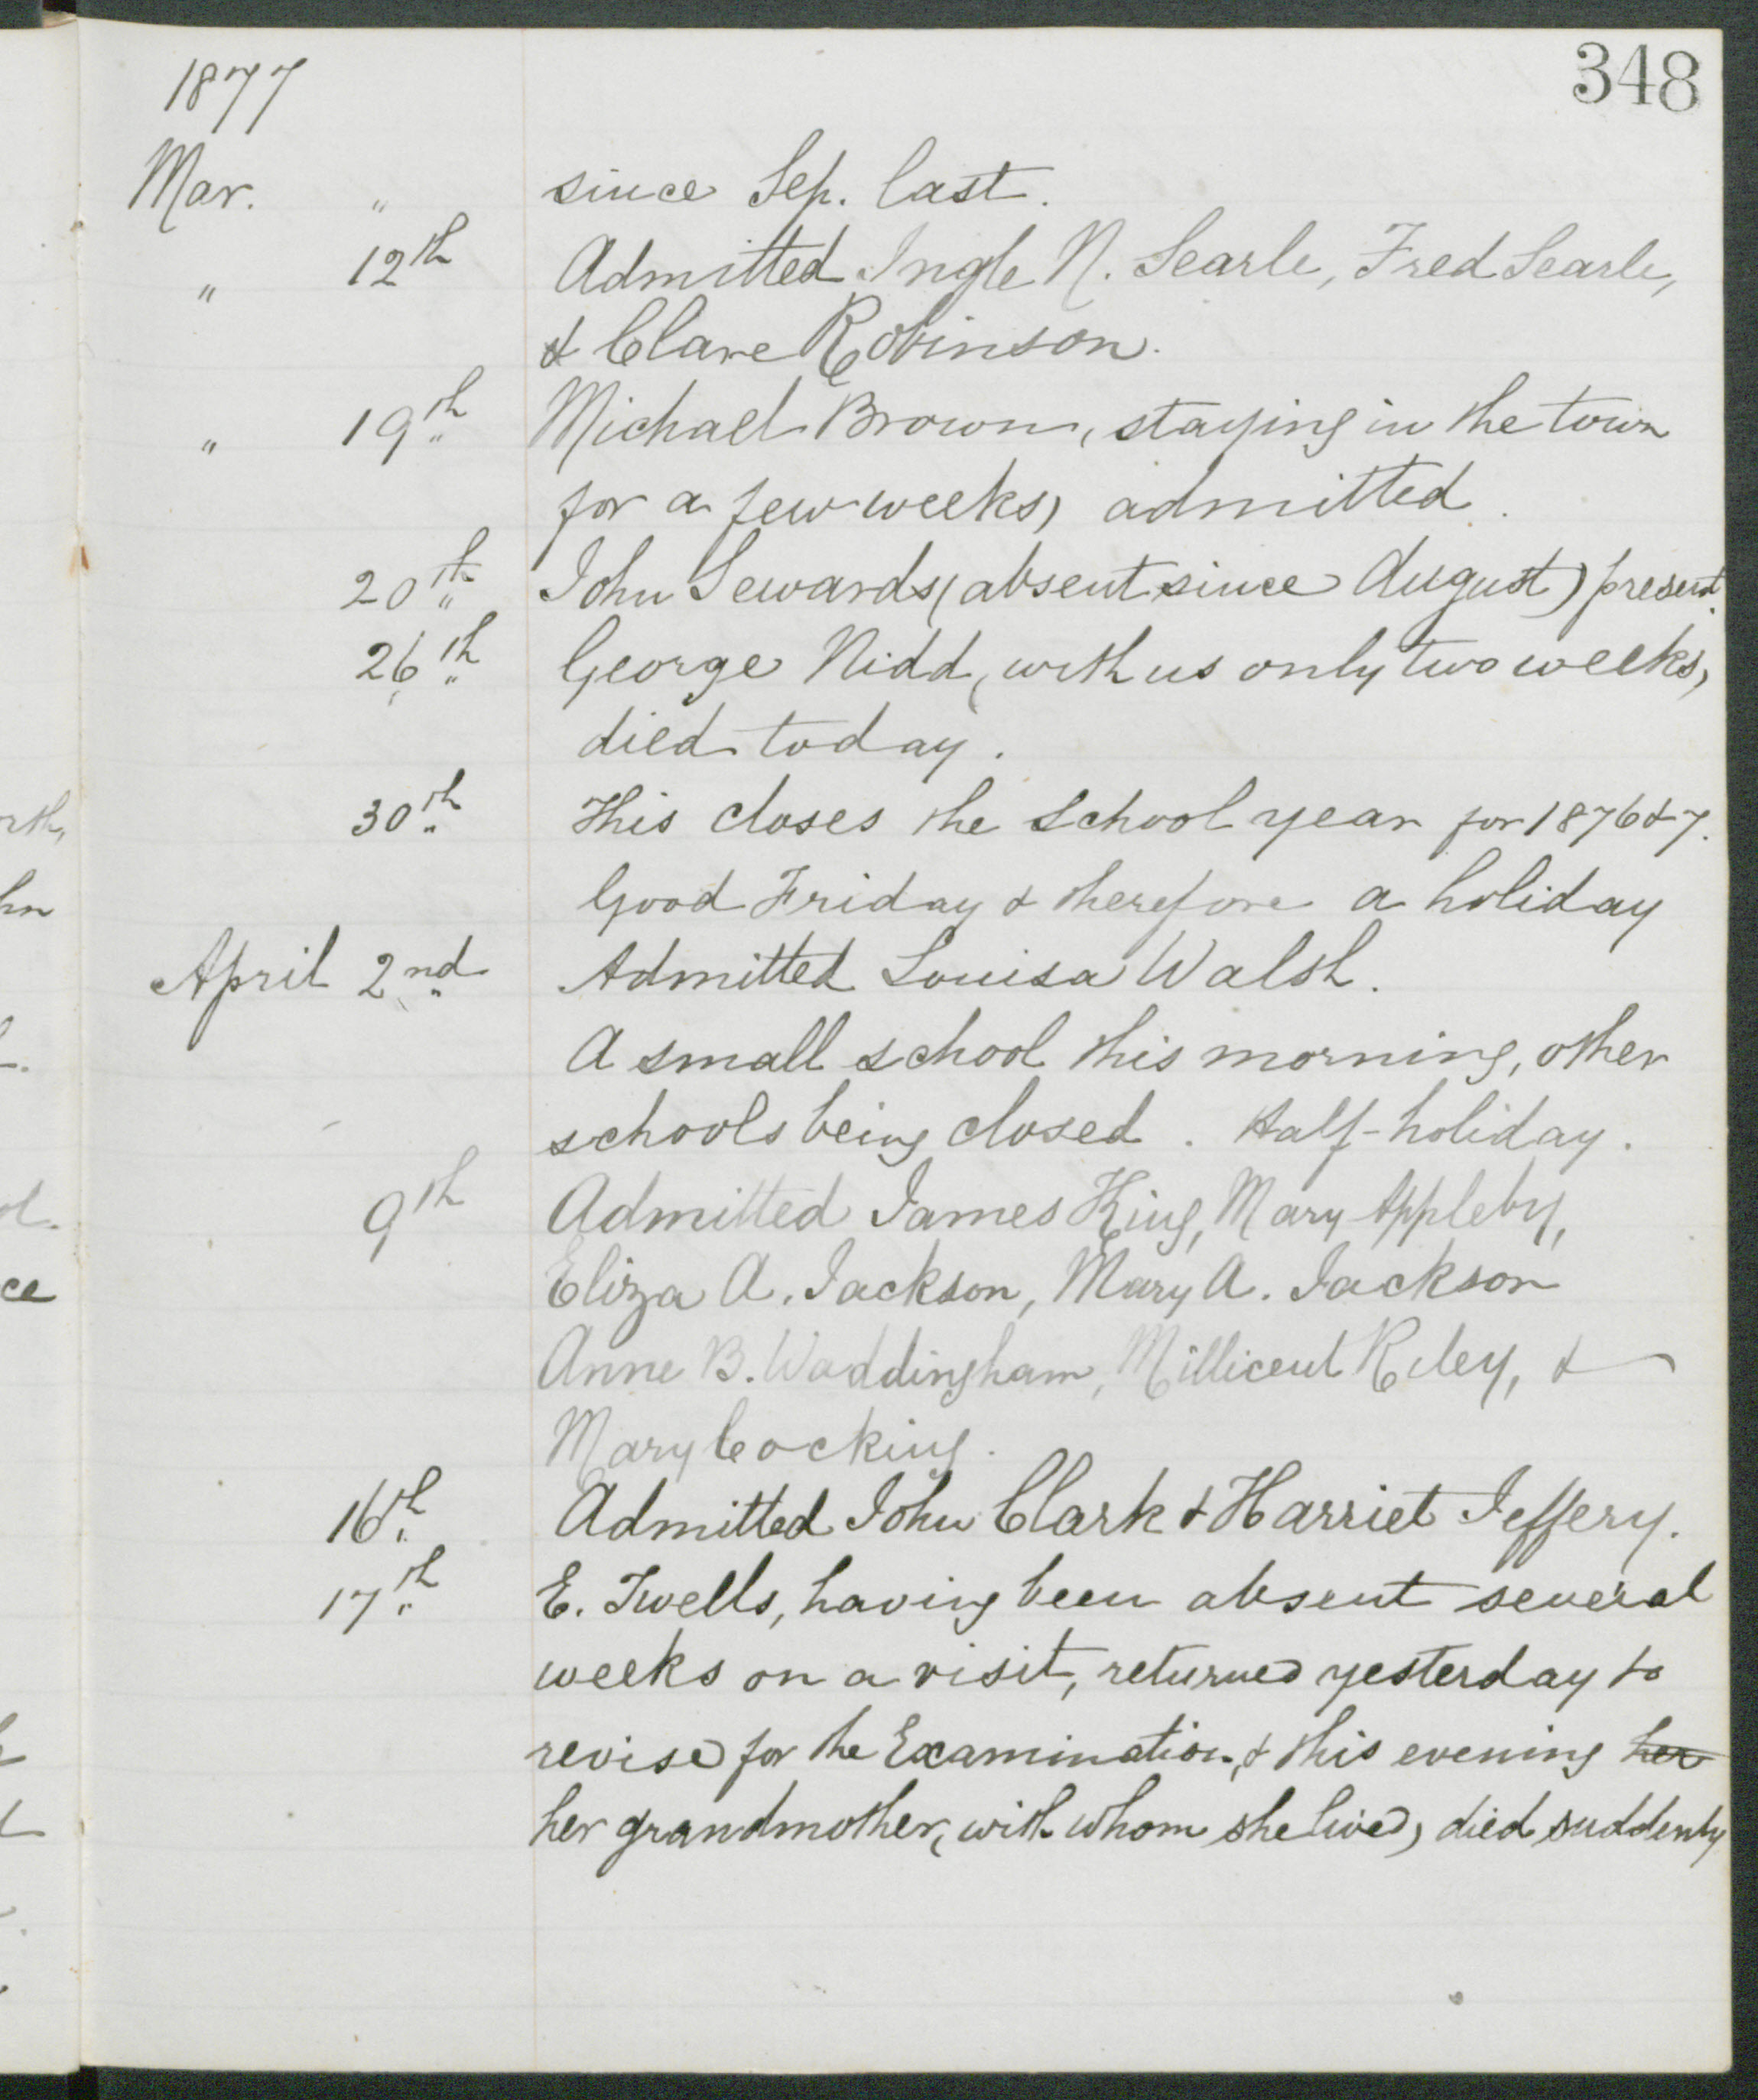 348
1877
Mar. " since Sep. last.
" 12th Admitted Ingle N. Searle, Fred Searle,
& Clare Robinson.
" 19th Michael Brown, staying in the town
for a few weeks, admitted.
20th John Sewards (absent since August) present.
26th George Nidd, with us only two weeks,
died today.
30th This closes the School year for 1876 & 7.
Good Friday & therefore a holiday
April 2nd Admitted Louisa Walsh.
A small school this morning, other
schools being closed. Half-holiday.
9th Admitted James King, Mary Appleby,
Eliza A. Jackson, Mary A. Jackson
Anne B. Waddingham, Millicent Riley, &
Mary Cocking.
16th Admitted John Clark & Harriet Jeffery.
17th E. Twells, having been absent several
weeks on a visit, returned yesterday to
revise for the Examination, & this evening her
her grandmother, with whom she lived, died suddenly